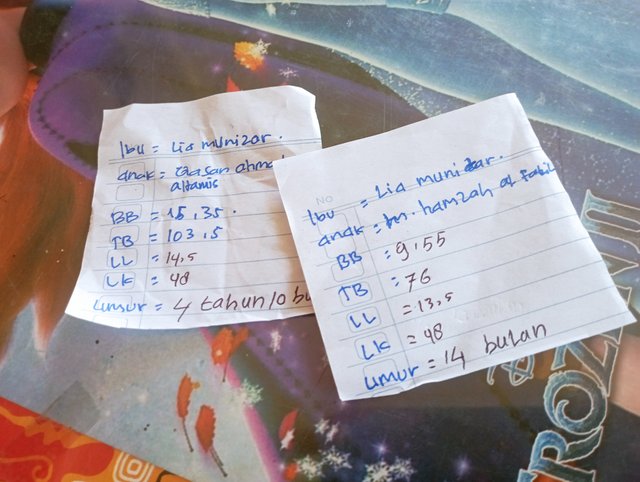 Ibu = Lia munizar.
anak = Gasan ahma
altamis
BB = 15,35.
TB = 103,5
LL = 14,5
LK = 48
umur = 4 tahun 10 bu
NO
Ibu = Lia munizar.
anak = m. hamzah al
BB = 9,55
TB = 76
LL = 13,5
LK = 48
umur = 14 bulan
FROZEN II